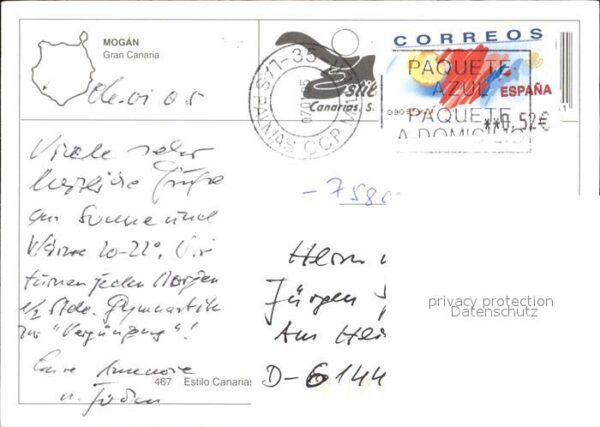 MOGÁN
Gran Canaria
06.01.05
Viele sehr
herzliche Grüße
aus Sonne und
Wärme 20-22°. Wir
turnen jeden Morgen
1/2 Stde. Gymnastik
zur "Vergüngung"!
Eure Annerose
u.
467 Estilo Canarias
Estil
Canarias, S.
35
LAS PALMAS CCP
CORREOS
ESPAÑA
**0,52€
PAQUETE
AZUL
PAQUETE
A DOMICILIO
Herrn
Jürgen
Am
D-6144
privacy protection
Datenschutz